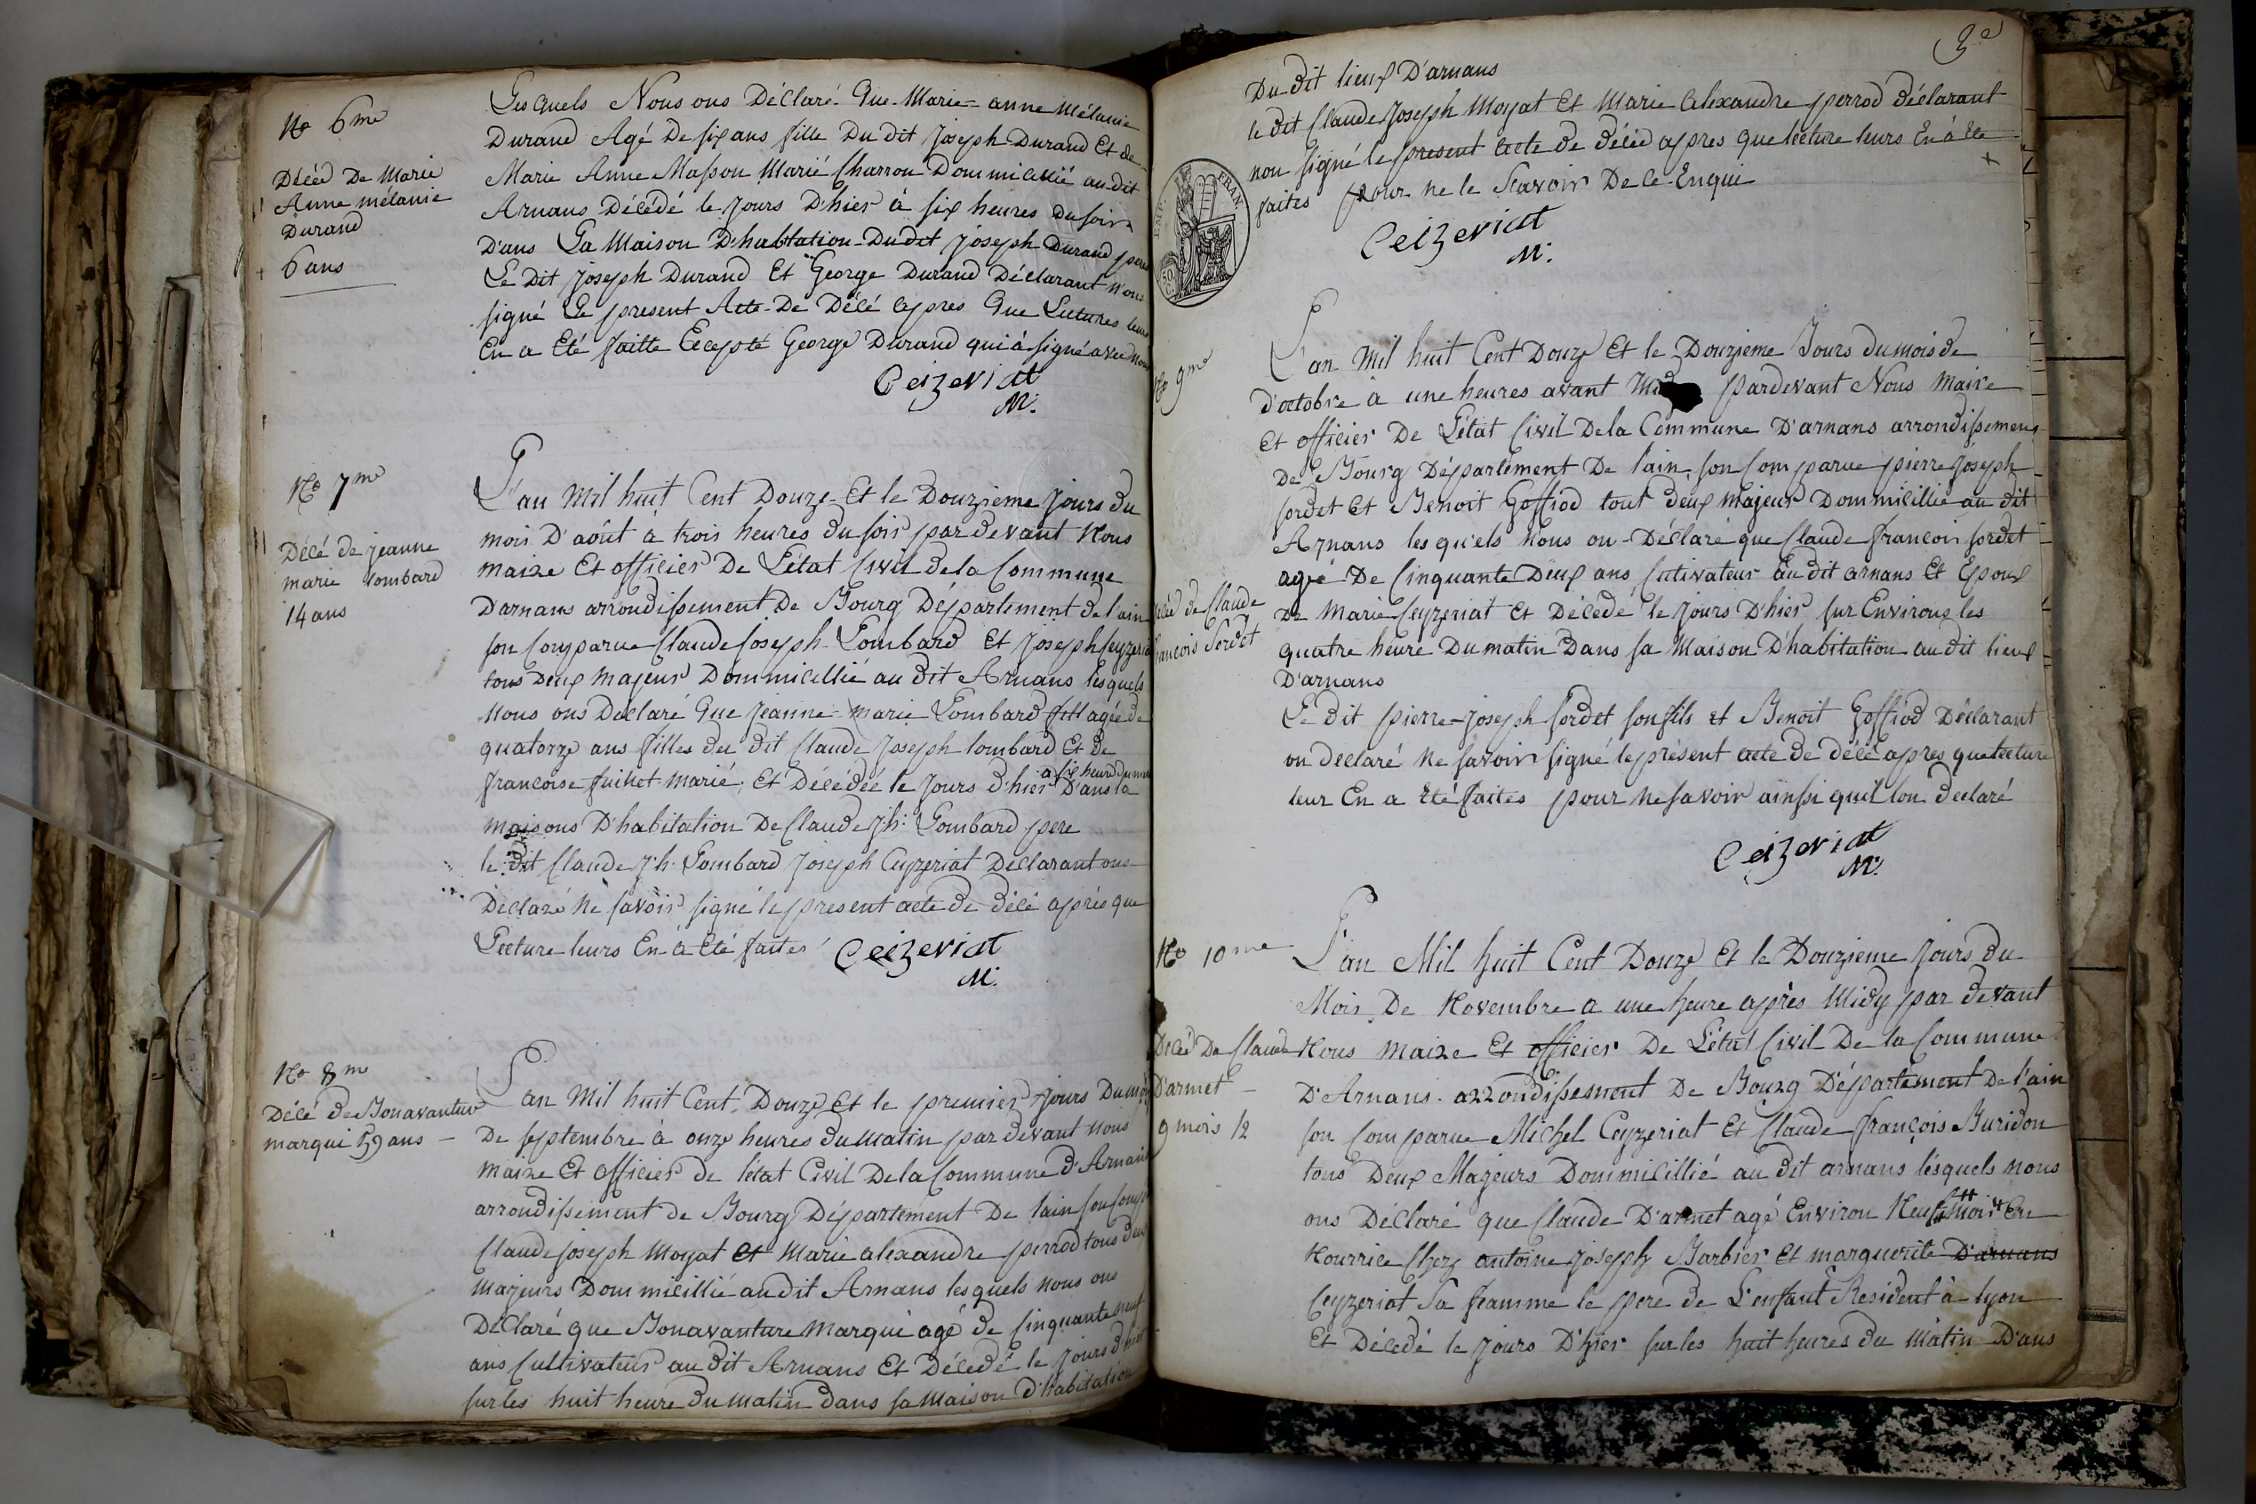 No 6me
Décéd De Marie
Anne mélanie
Durand
6 ans
Les quels Nous ons Déclaré Que Marie anne Mélanie
Durand Agé De six ans fille Du dit Joseph Durand Et de
Marie Anne Masson Marié Charron Dommicilié au dit
Arnans Décédé le Jours D'hier à six heures du soir
D'ans La Maison D'habitation Dudit Joseph Durand pere
Le Dit Joseph Durand Et George Durand Déclarant N'ons
signé Le present Acte De Décé apres Que Lectures leurs
En a Eté faitte Excepté George Durand qui à signé avec nous
Ceizeriat
M.
No 7me
Décé de jeanne
marie Lombard
14 ans
L'an Mil huit Cent Douze Et le Douzieme Jours du
mois D'août à trois heures du soir par devant Nous
maire Et officier De L'état Civil de la Commune
D'arnans arrondissement De Bourg Département de l'ain
son Comparue Claude joseph Lombard Et Joseph Ceyzeriat
tous Deux Majeur Dommicillié au dit Arnans lesquels
Nous ons Déclaré Que jeanne marie Lombard fill agée de
quatorze ans filles du dit Claude Joseph lombard Et de
francoise fuillet marié Et Décédée le Jours d'hier à six heure du matin D'ans la
maisons D'habitation De Claude Jh: Lombard pere
le dit Claude Jh. Lombard Joseph Ceyzeriat Déclarant ons
Déclaré Ne savoir signé le present acte de décé après que
Lecture leurs En à Eté faites Ceizeriat
M.
No 8me
Décé de Bonavantur
marqui 59 ans
L'an Mil huit Cent Douze Et le premier Jours Du mois
De septembre à onze heures du matin par devant nous
maire Et officier de l'état Civil De la Commune d'Arnans
arrondissement de Bourg Département De l'ain son Comp
Claude joseph Moyat et Marie alexandre perrod tous deux
majeurs Dommicillié au dit Arnans lesquels nous ons
Déclaré que Bonavanture Marqui agé de Cinquante neuf
ans Cultivateur au dit Arnans Et Décédé le jours d'hier
sur les huit heure Du matin dans sa Maison d'habitation
3e
Du dit lieux D'arnans
le dit Claude Joseph Moyat Et Marie Alexandre perrod déclarant
non signé le present acte de décéd apres que lecture leurs En à Ete
faites pour ne le Scavoir De ce Enqui
Ceizeriat
M.
EMP. FRAN.
50
C.
No 9me
Décéd de Claude
francois Sordet
L'an Mil huit Cent Douze Et le Douzieme Jours du mois de
d'octobre à une heures avant Midy pardevant Nous Maire
Et officier De L'état Civil De la Commune D'arnans arrondissement
De Bourg Département De l'ain son Comparue pierre joseph
sordet Et Benoit Goffiod tout deux Majeur Dommicillié au dit
Arnans les qu'els Nous on Déclaré que Claude francois sordet
agée De Cinquante Deux ans Cultivateur Au dit arnans Et Epoux
De Marie Ceyzeriat Et Décédé le jours D'hier sur Environs les
quatre heure Du matin Dans sa Maison D'habitation au dit lieux
D'arnans
Le dit pierre joseph sordet son fils et Benoit Goffiod Déclarant
on declaré Ne savoir signé le présent acte de décé apres que lecture
leur En a Eté faites pour ne savoir ainssi quil lon declaré
Ceizeriat
M.
No 10me
Décéd De Claude
D'armet
9 mois ½
L'an Mil huit Cent Douze Et le Douzieme Jours du
Mois De Novembre a une heure après Midy par devant
Nous Maire Et officier De L'état Civil De la Commune
D'Arnans arrondissement De Bourg Département De l'ain
son Comparue Michel Ceyzeriat Et Claude françois Buridon
tous Deux Majeurs Dommicillié au dit arnans lesquels nous
ons Déclaré que Claude D'armet agé Environ Neuf Mois En
Nourrice Chez antoine joseph Barbier Et marguerite D'arnans
Ceyzeriat Sa feamme le pere de L'enfant Resident à lyon
Et Décedé le Jours D'hier sur les huit heures du matin D'ans